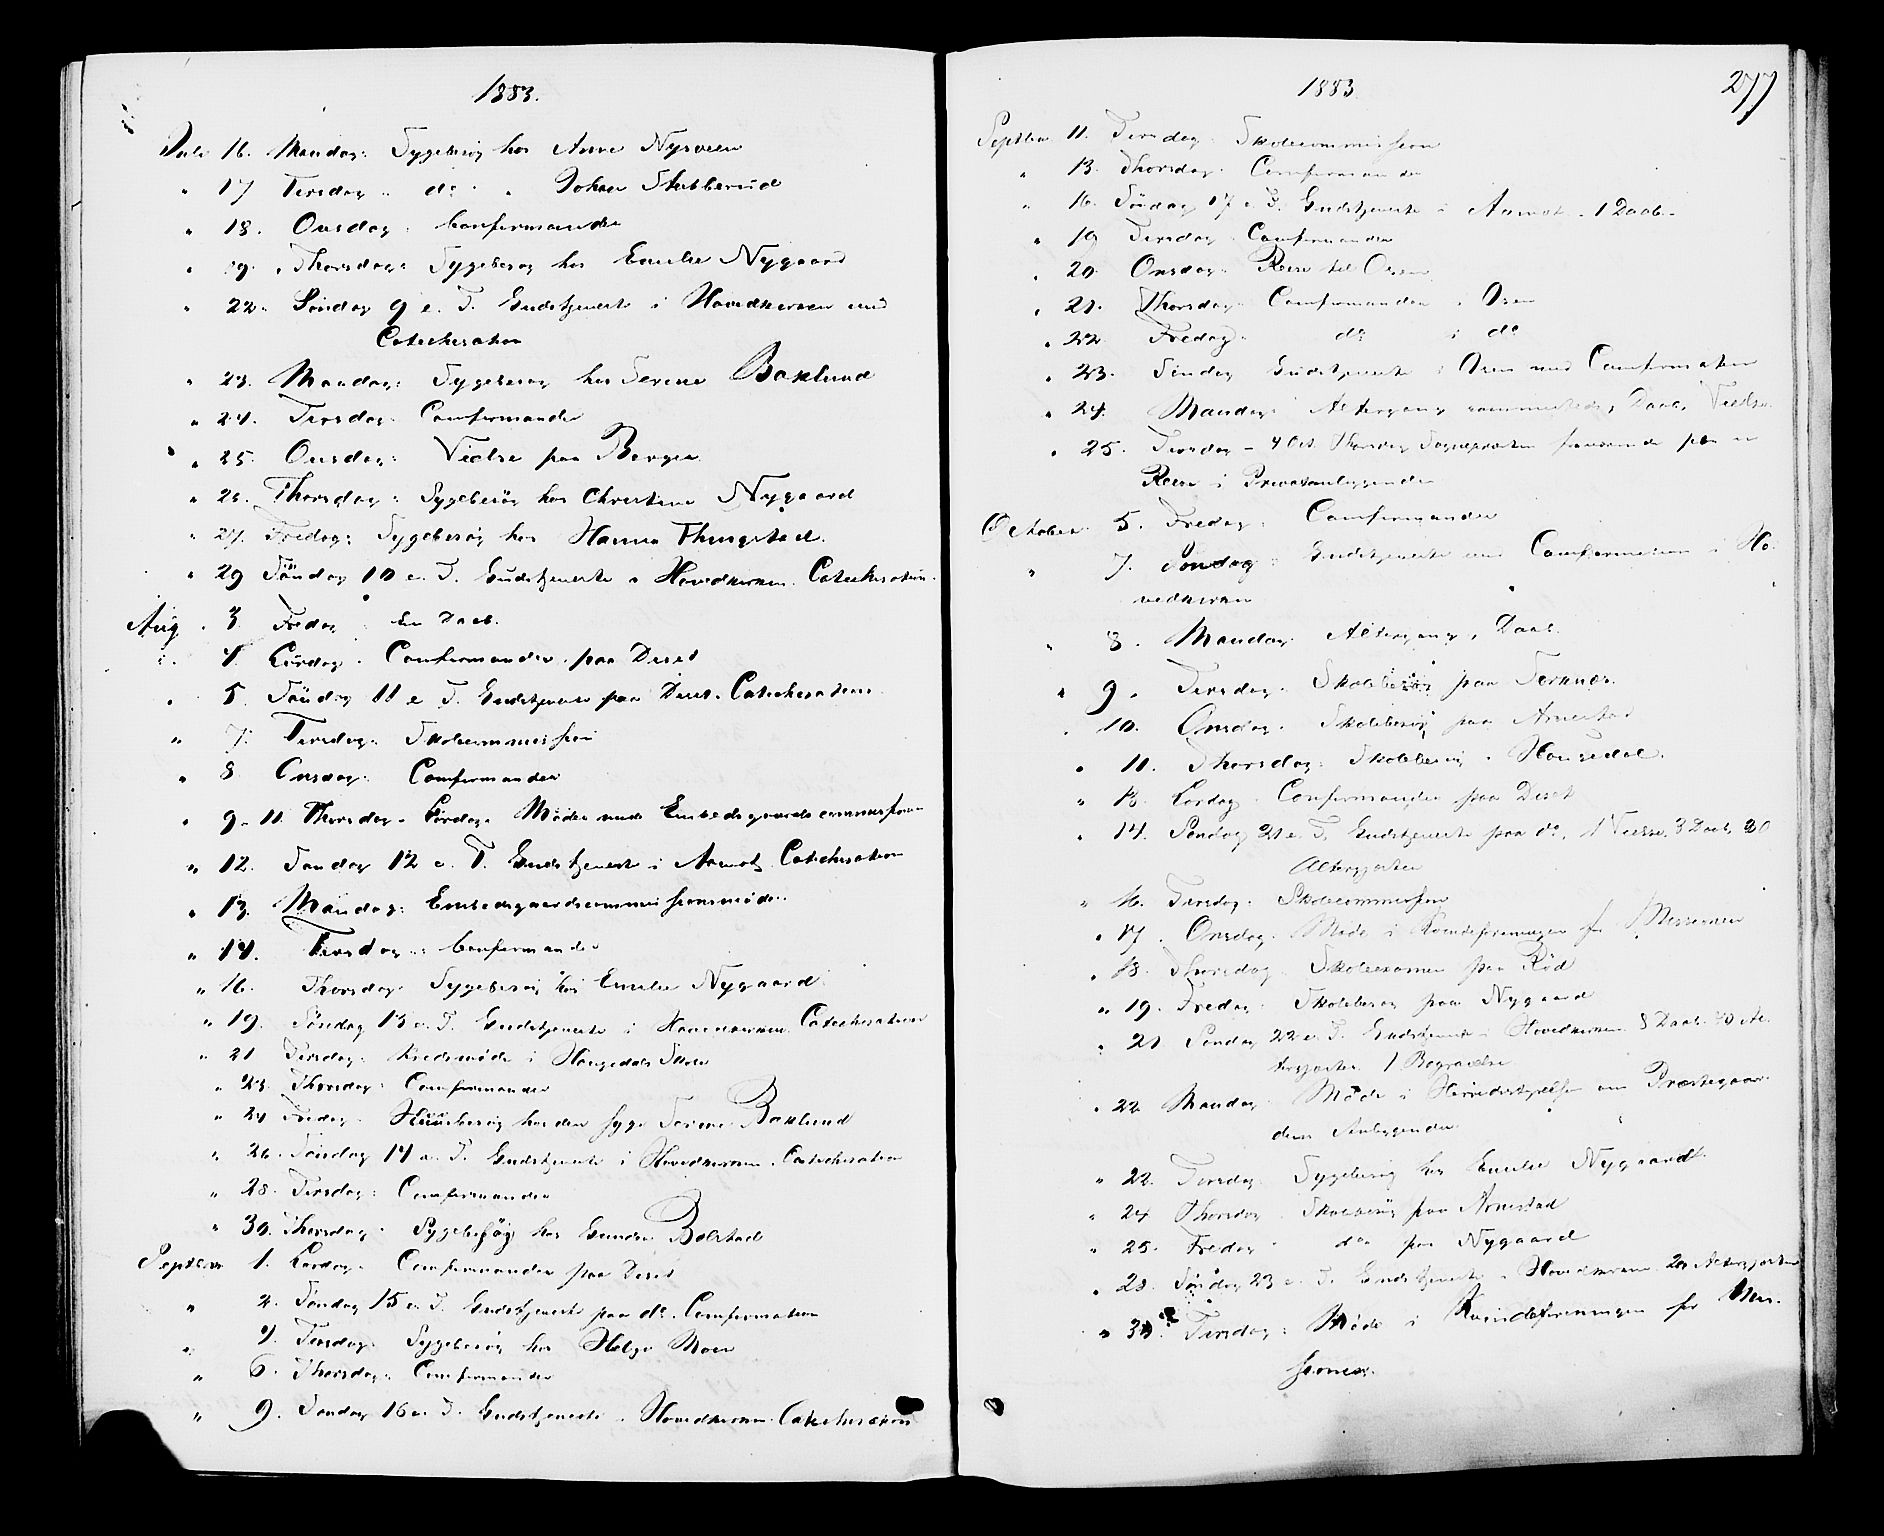 1883.
Juli 16. Mandag: Sygebesøg hos Anne Nysveen
" 17 Tirsdag " do " Johan Stubberud
" 18. Onsdag: Confirmander
" 19. Thorsdag: Sygebesøg hos Emilie Nygaard
" 22. Søndag 9 e. T. Gudstjeneste i Hovedkirken med
Catechisation
" 23. Mandag: Sygebesøg hos Serine Baklund
" 24. Tirsdag: Confirmander
" 25. Onsdag: Vielse paa Berger
" 26. Thorsdag: Sygebesøg hos Christine Nygaard
" 27. Fredag: Sygebesøg hos Hanna Thingstad.
" 29 Søndag 10 e. T. Gudstjeneste i Hovedkirken. Catechisation.
Aug. 3. Fredag: En Daab.
" 4. Lørdag. Confirmander paa Deset
" 5. Søndag 11 e T. Gudstjeneste paa Deset. Catechisation
" 7. Tirsdag: Skolecommission
" 8. Onsdag: Confirmander
" 9-11. Thorsdag-Lørdag. Møder med Embedsgaardscommission
" 12. Søndag 12 e. T. Gudstjeneste i Aamot. Catechisation
" 13. Mandag: Embedsgaardscommissionsmøde.
" 14. Tirsdag: Confirmander
" 16. Thorsdag. Sygebesøg hos Emilie Nygaard
" 19. Søndag 13 e. T. Gudstjeneste i Hovedkirken. Catechisation
" 21 Tirsdag: Kredsmøde i Haugedals Skole
" 23. Thorsdag: Confirmander
" 24 Fredag. Huusbesøg hos den syge Serine Baklund
" 26. Søndag 14 e. T. Gudstjeneste i Hovedkirken. Catechisation
" 28. Tirsdag: Confirmander
" 30. Thorsdag: Sygebesøg hos Gunder Bolstad
Septbr. 1. Lørdag. Confirmander paa Deset
" 2. Søndag 15 e. T. Gudstjeneste paa do. Confirmation
" 4. Tirsdag. Sygebesøg hos Helge Moen
" 6. Thorsdag. Confirmander
" 9. Søndag 16 e. T. Gudstjeneste i Hovedkirken. Catechisation
1883
277
Septbr 11. Tirsdag. Skolecommission
" 13. Thorsdag. Confirmander
" 16. Søndag 17 e. T. Gudstjeneste i Aamot. 1 Daab.
" 19 Confirmander
" 20. Onsdag: Reise til Osen
" 21. Thorsdag. Confirmander i Osen
" 22 Fredag. do i do
" 23. Søndag Gudstjeneste i Osen med Confirmation
" 24. Mandag: Altergang sammesteds, Daab, Vielse.
" 25. Tirsdag - 4 Oct. Thorsdag Sognepræsten fraværende paa en
Reise i Privatanliggender
October 5. Fredag. Confirmander
" 7. Søndag: Gudstjeneste med Confirmation i Ho-
vedkirken
" 8. Mandag. Altergang, Daab.
" 9. Tirsdag. Skolebesøg paa
" 10. Onsdag. Skolebesøg paa Arnestad
" 11. Thorsdag. Skolebesøg i Haugedal.
" 13. Lørdag. Confirmander paa Deset
" 14. Søndag 21 e. T. Gudstjeneste paa do, 1 Vielse, 3 Daab, 20
Altergjæster
" 16. Tirsdag. Skolecommission
" 17. Onsdag. Møde i Kvindeforeningen for Missionen
" 18. Thorsdag. Skoleexamen paa Rød
" 19. Fredag. Skolebesøg paa Nygaard
" 21. Søndag 22 e. T. Gudstjeneste i Hovedkirken 8 Daab. 40 Al-
tergjæster. 1 Begravelse
" 22 Mandag. Møde i Herredsstyrelsen om Præstegaar-
dens Anliggender
" 22. Tirsdag. Sygebesøg hos Emilie Nygaard.
" 24 Thorsdag. Skolebesøg paa Arnestad
" 25. Fredag " do paa Nygaard
" 28. Søndag 23 e. T. Gudstjeneste i Hovedkirken 20 Altergjæster
" 30. Tirsdag: Møde i Kvindeforeningen for Mis-
sionen.